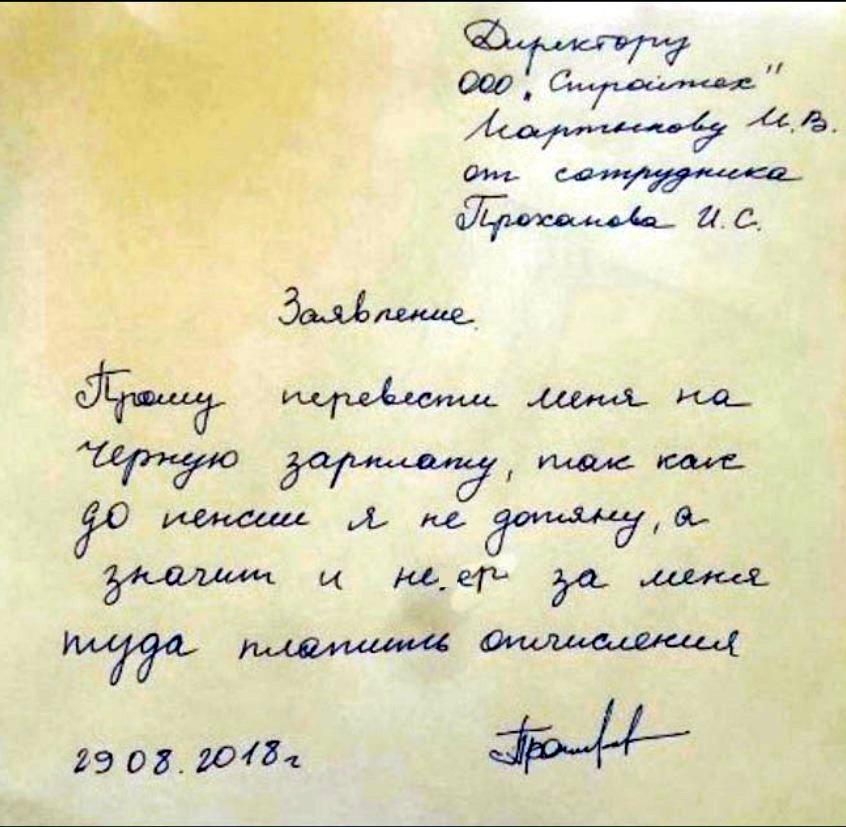 Директору
ООО "Стройтех"
Мартынову И.В.
от сотрудника
Проханова И.С.
Заявление.
Прошу перевести меня на
черную зарплату, так как
до пенсии я не дотяну, а
значит и не.ер за меня
туда платить отчисления
29 08.2018г